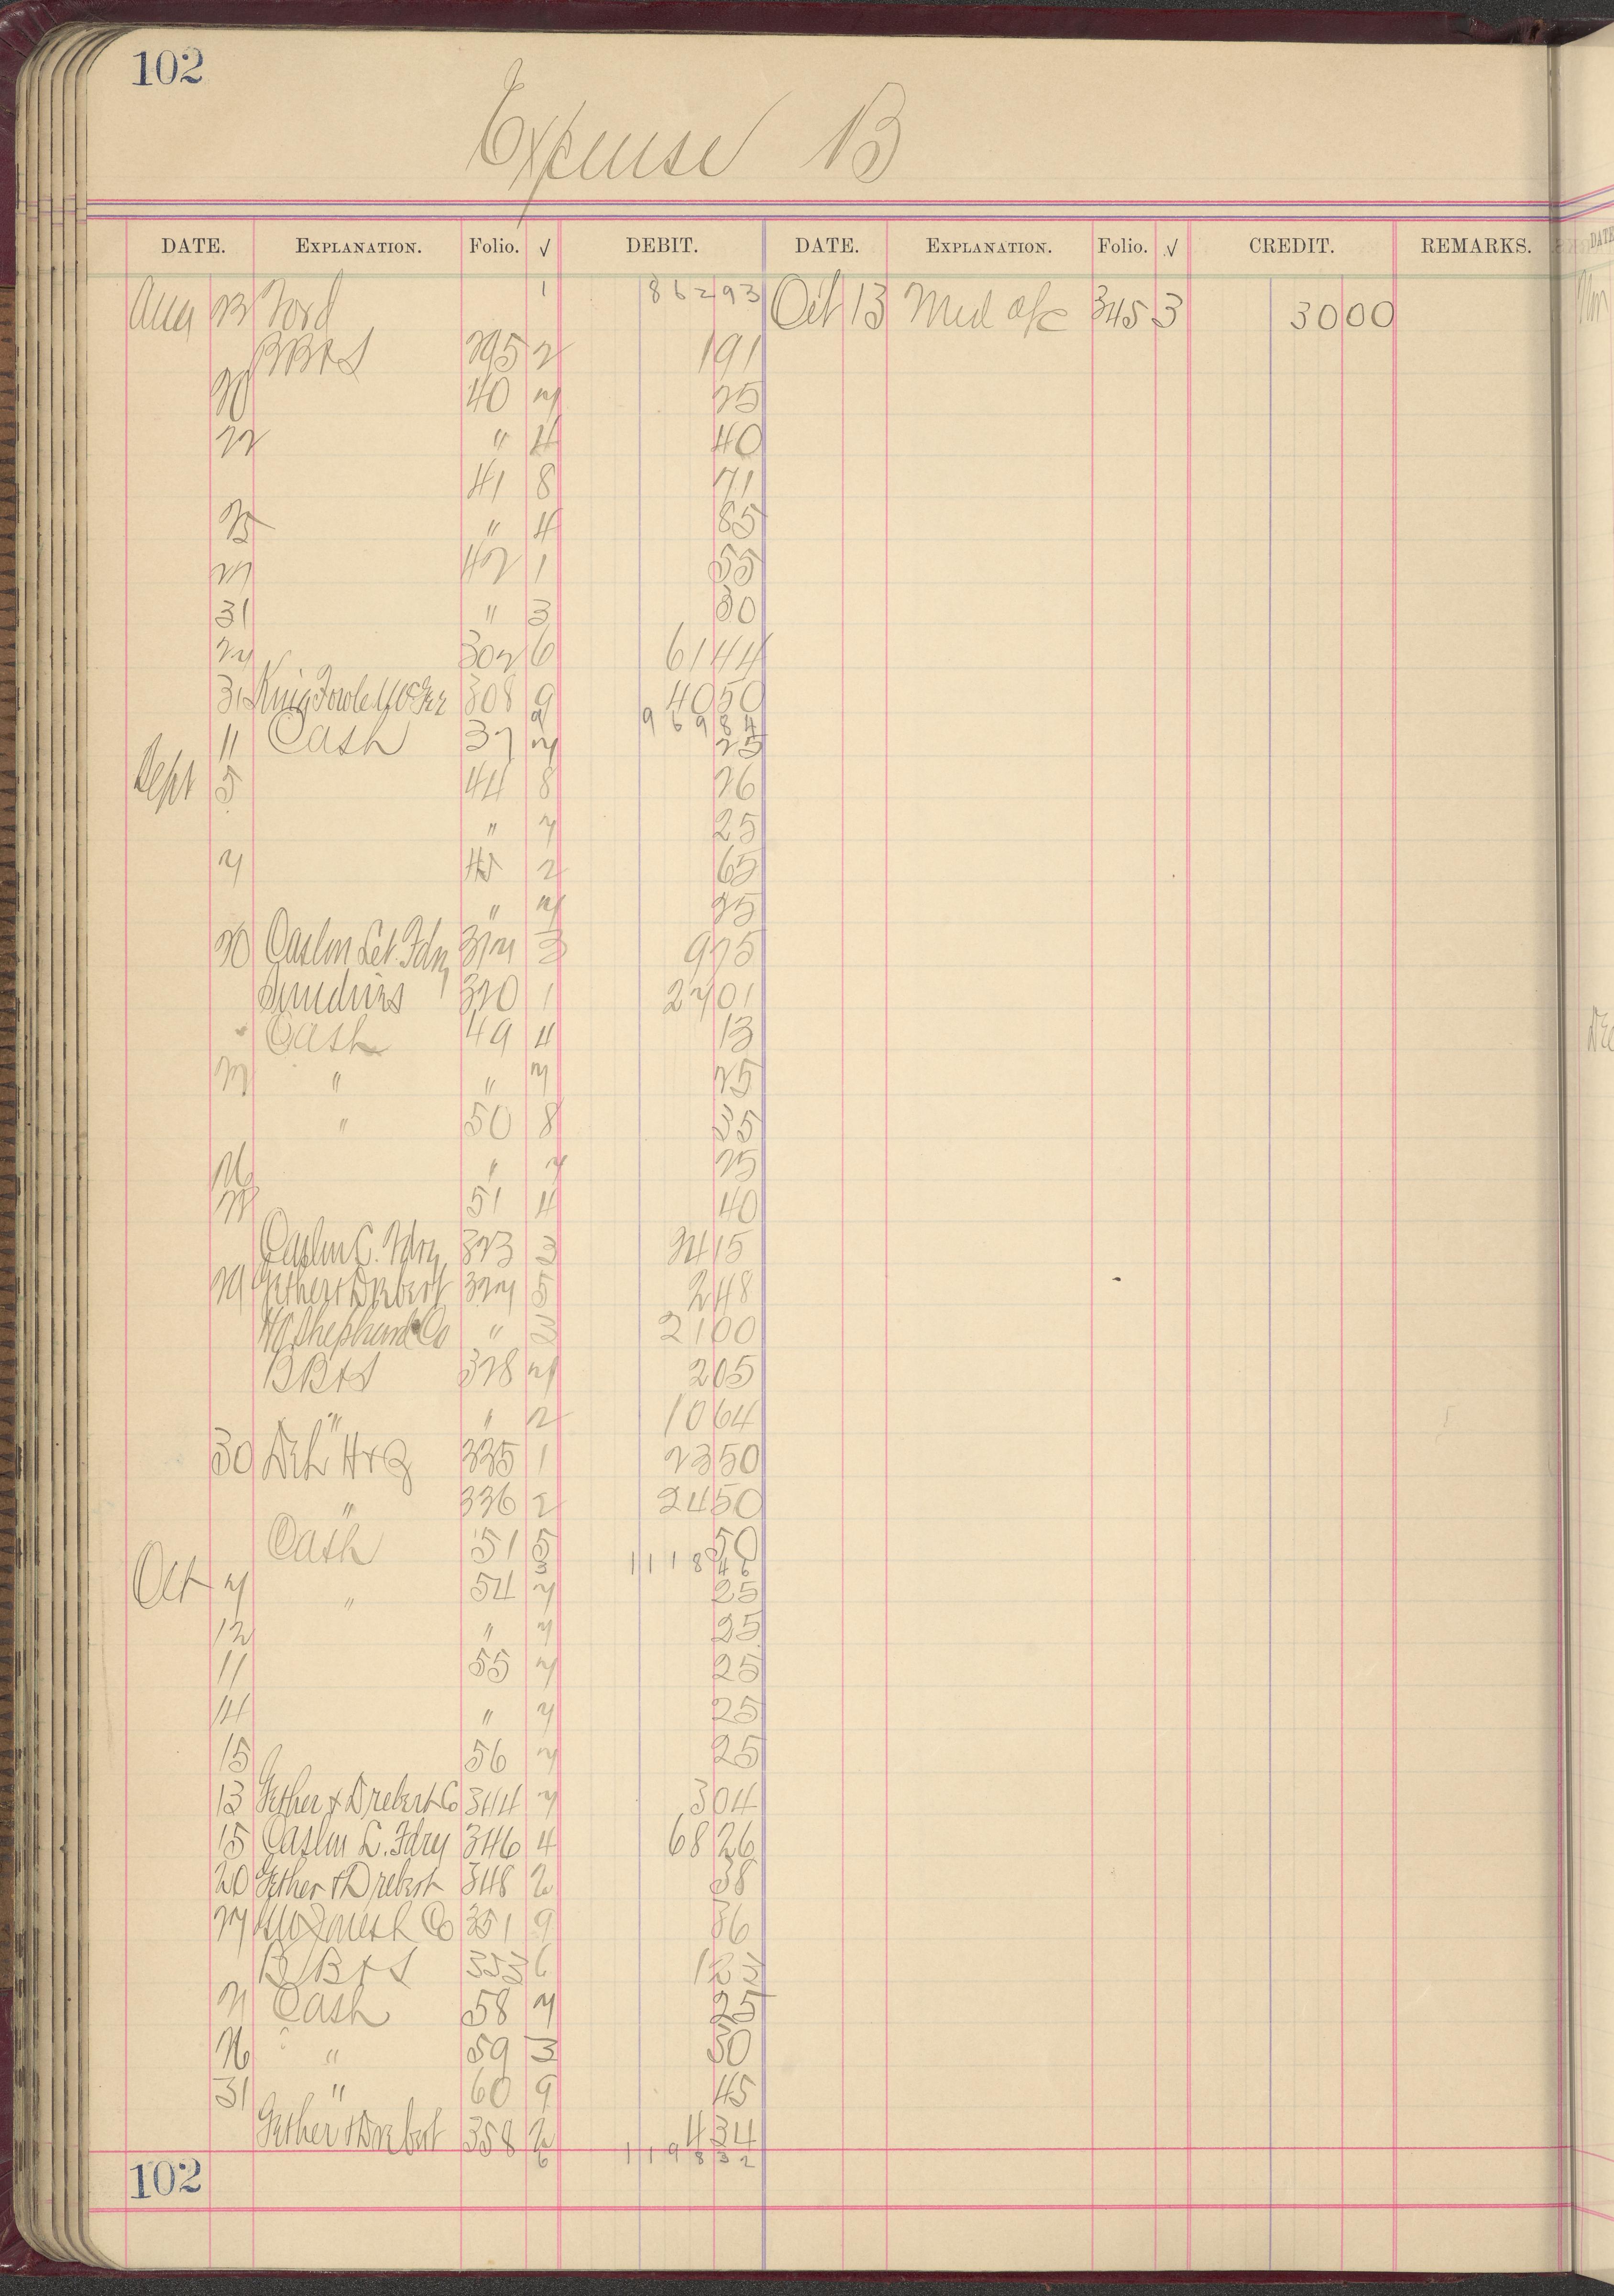 102
Expense B
DATE. EXPLANATION. Folio. √ DEBIT. DATE. EXPLANATION. Folio. √ CREDIT. REMARKS.
Aug 13 Ford 1 86293 Oct 13 Md a/c 345 3 3000
BB&S 295 2 191
20 40 7 25
22 " 4 40
41 8 71
25 " 4 85
27 42 1 55
31 " 3 30
24 302 6 6144
31 King Fowle McGee 308 9 4050
2 96984
11 Cash 37 7 25
Sept 5 44 8 26
" 7 25
7 45 2 65
" 7 25
20 Caslon Let. Fdry 317 3 975
Sundries 320 1 2701
Cash 49 4 13
" " 7 25
" 50 8 35
26 " 7 25
28 51 4 40
Caslon L. Fdry 323 3 2415
29 Gether & Drebert 327 5 248
HC Shepherd Co " 3 2100
BB&S 328 7 205
" " 2 1064
30 Deh H&Q 335 1 2350
" 336 2 2450
Cash 51 5 50
3 111846
Oct 7 " 54 7 25
12 " 7 25
11 55 7 25
14 " 7 25
15 56 7 25
13 Gether & Drebert Co 344 7 304
15 Caslon L. Fdry 346 4 6826
20 Gether & Drebert 348 2 38
27 Co 351 9 36
BB&S 353 6 123
21 Cash 58 7 25
26 " 59 3 50
31 " 60 9 45
Gether & Drebert 358 2 434
6 119832
102